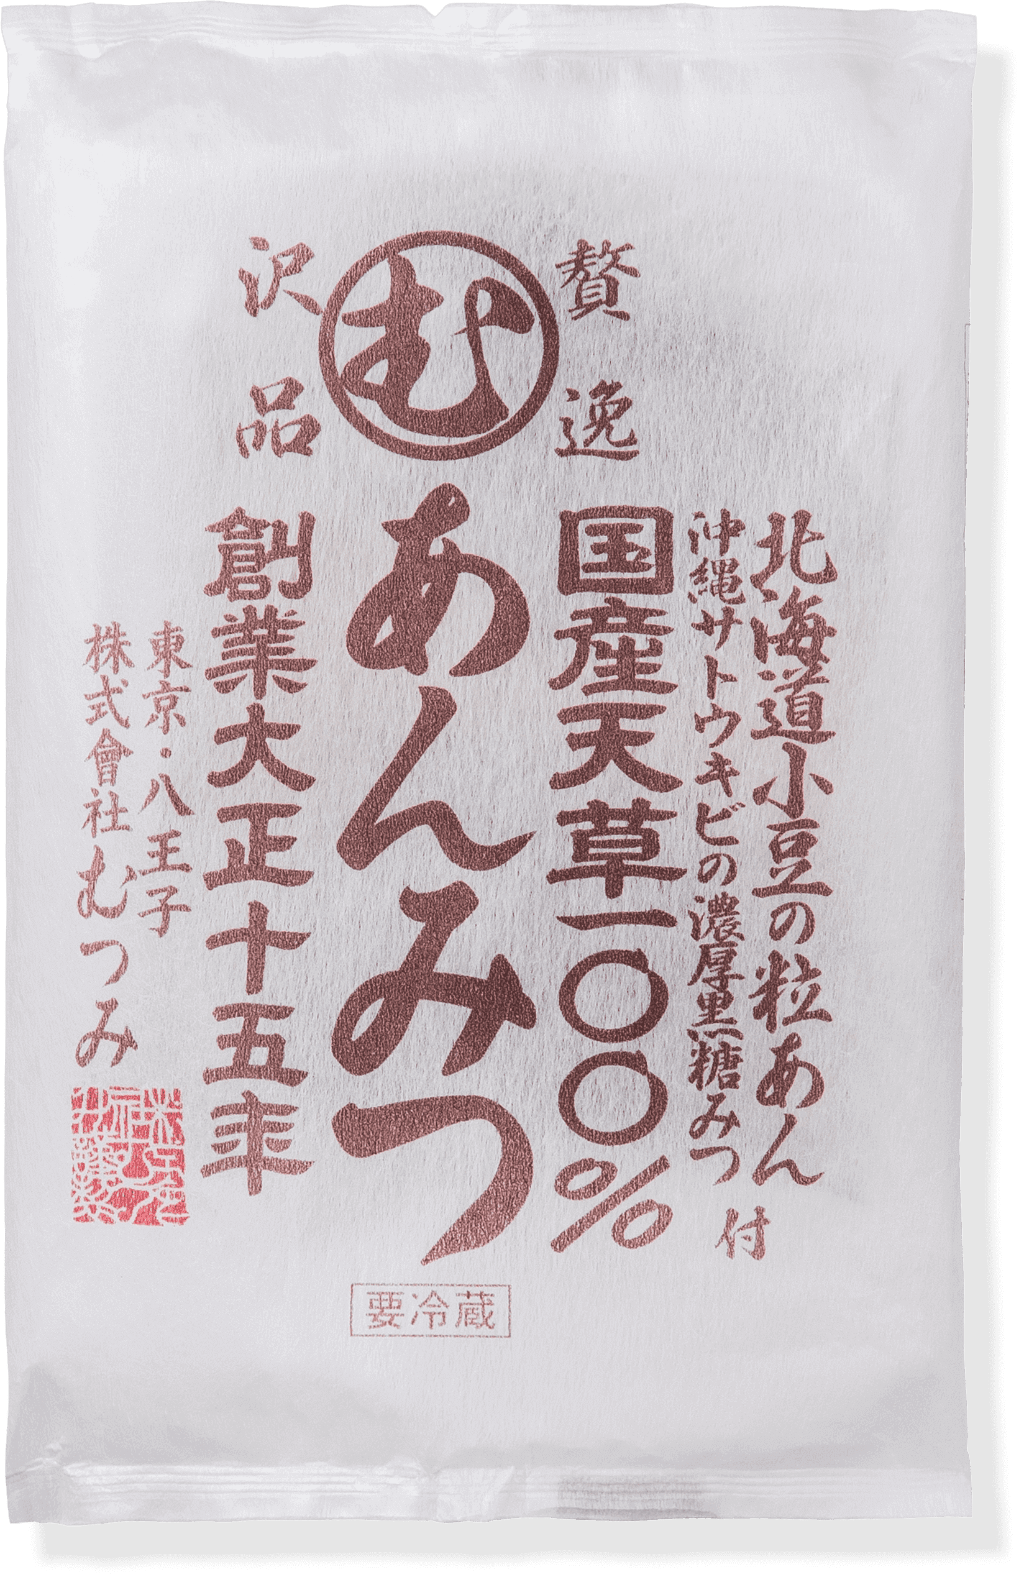 贅沢
逸品
む
北海道小豆の粒あん
沖縄サトウキビの濃厚黒糖みつ
付
国産天草一〇〇%
あんみつ
創業大正十五年
東京・八王子
株式會社むつみ
要冷蔵